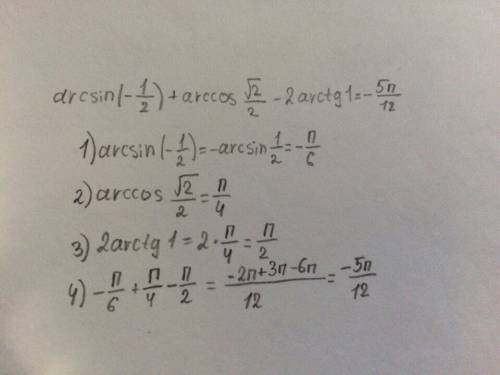 arcsin(-1/2) + arccos √2/2 - 2arctg1 = -5π/12
1) arcsin(-1/2) = -arcsin 1/2 = -π/6
2) arccos √2/2 = π/4
3) 2arctg 1 = 2 · π/4 = π/2
4) -π/6 + π/4 - π/2 = (-2π+3π-6π)/12 = -5π/12